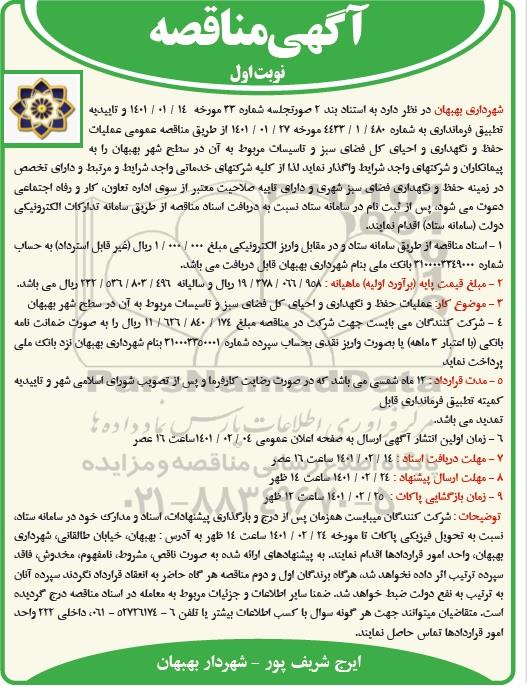 آگهی مناقصه
نوبت اول
شهرداری بهبهان در نظر دارد به استناد بند ۲ صورتجلسه شماره ۳۳ مورخه ۱۴ / ۰۱ / ۱۴۰۱ و تاییدیه
تطبیق فرمانداری به شماره ۴۸۰ / ۱ / ۴۴۳۳ مورخه ۲۷ / ۰۱ / ۱۴۰۱ از طریق مناقصه عمومی عملیات
حفظ و نگهداری و احیای کل فضای سبز و تاسیسات مربوط به آن در سطح شهر بهبهان را به
پیمانکاران و شرکتهای واجد شرایط واگذار نماید لذا از کلیه شرکتهای خدماتی واجد شرایط و مرتبط و دارای تخصص
در زمینه حفظ و نگهداری فضای سبز شهری و دارای تایید صلاحیت معتبر از سوی اداره تعاون، کار و رفاه اجتماعی
دعوت می شود، پس از ثبت نام در سامانه ستاد نسبت به دریافت اسناد مناقصه از طریق سامانه تدارکات الکترونیکی
دولت (سامانه ستاد) اقدام نمایند.
۱ - اسناد مناقصه از طریق سامانه ستاد و در مقابل واریز الکترونیکی مبلغ ۰۰۰ / ۰۰۰ / ۱ ریال (غیر قابل استرداد) به حساب
شماره ۳۱۰۰۰۰۳۳۴۹۰۰۰ بانک ملی بنام شهرداری بهبهان قابل دریافت می باشد.
۲ - مبلغ قیمت پایه (برآورد اولیه) ماهیانه : ۹۵۸ / ۰۶۶ / ۳۷۸ / ۱۹ ریال و سالیانه ۴۹۶ / ۸۰۳ / ۵۳۶ / ۲۳۲ ریال می باشد.
۳ - موضوع کار: عملیات حفظ و نگهداری و احیای کل فضای سبز و تاسیسات مربوط به آن در سطح شهر بهبهان
۴ - شرکت کنندگان می بایست جهت شرکت در مناقصه مبلغ ۱۷۴ / ۸۴۰ / ۶۲۶ / ۱۱ ریال را به صورت ضمانت نامه
بانکی (با اعتبار ۳ ماهه) یا بصورت واریز نقدی بحساب سپرده شماره ۳۱۰۰۰۲۳۵۰۰۰۱ بنام شهرداری بهبهان نزد بانک ملی
پرداخت نماید
۵ - مدت قرارداد : ۱۲ ماه شمسی می باشد که در صورت رضایت کارفرما و پس از تصویب شورای اسلامی شهر و تاییدیه
کمیته تطبیق فرمانداری قابل
تمدید می باشد.
۶ - زمان اولین انتشار آگهی ارسال به صفحه اعلان عمومی ۰۴ / ۰۲ / ۱۴۰۱ ساعت ۱۶ عصر
۷ - مهلت دریافت اسناد : ۱۴ / ۰۲ / ۱۴۰۱ ساعت ۱۶ عصر
۸ - مهلت ارسال پیشنهاد : ۲۴ / ۰۲ / ۱۴۰۱ ساعت ۱۴ ظهر
۹ - زمان بازگشایی پاکات : ۲۵ / ۰۲ / ۱۴۰۱ ساعت ۱۲ ظهر
توضیحات : شرکت کنندگان میبایست همزمان پس از درج و بارگذاری پیشنهادات، اسناد و مدارک خود در سامانه ستاد،
نسبت به تحویل فیزیکی پاکات تا مورخه ۲۴ / ۰۲ / ۱۴۰۱ ساعت ۱۴ ظهر به آدرس : بهبهان، خیابان طالقانی، شهرداری
بهبهان، واحد امور قراردادها اقدام نمایند. به پیشنهادهای ارائه شده به صورت ناقص، مشروط، نامفهوم، مخدوش، فاقد
سپرده ترتیب اثر داده نخواهد شد، هرگاه برندگان اول و دوم مناقصه هر گاه حاضر به انعقاد قرارداد نگردند سپرده آنان
به ترتیب به نفع دولت ضبط خواهد شد. ضمنا سایر اطلاعات و جزئیات مربوط به معامله در اسناد مناقصه درج گردیده
است. متقاضیان میتوانند جهت هر گونه سوال یا کسب اطلاعات بیشتر با تلفن ۶ - ۵۲۷۲۶۱۷۴ - ۰۶۱، داخلی ۲۲۲ واحد
امور قراردادها تماس حاصل نمایند.
ایرج شریف پور - شهردار بهبهان
ParsNamadData
مرکز فرآوری اطلاعات پارس نماد داده ها
پایگاه اطلاع رسانی مناقصه و مزایده
۰۲۱-۸۸۳۴۹۶۷۰-۵